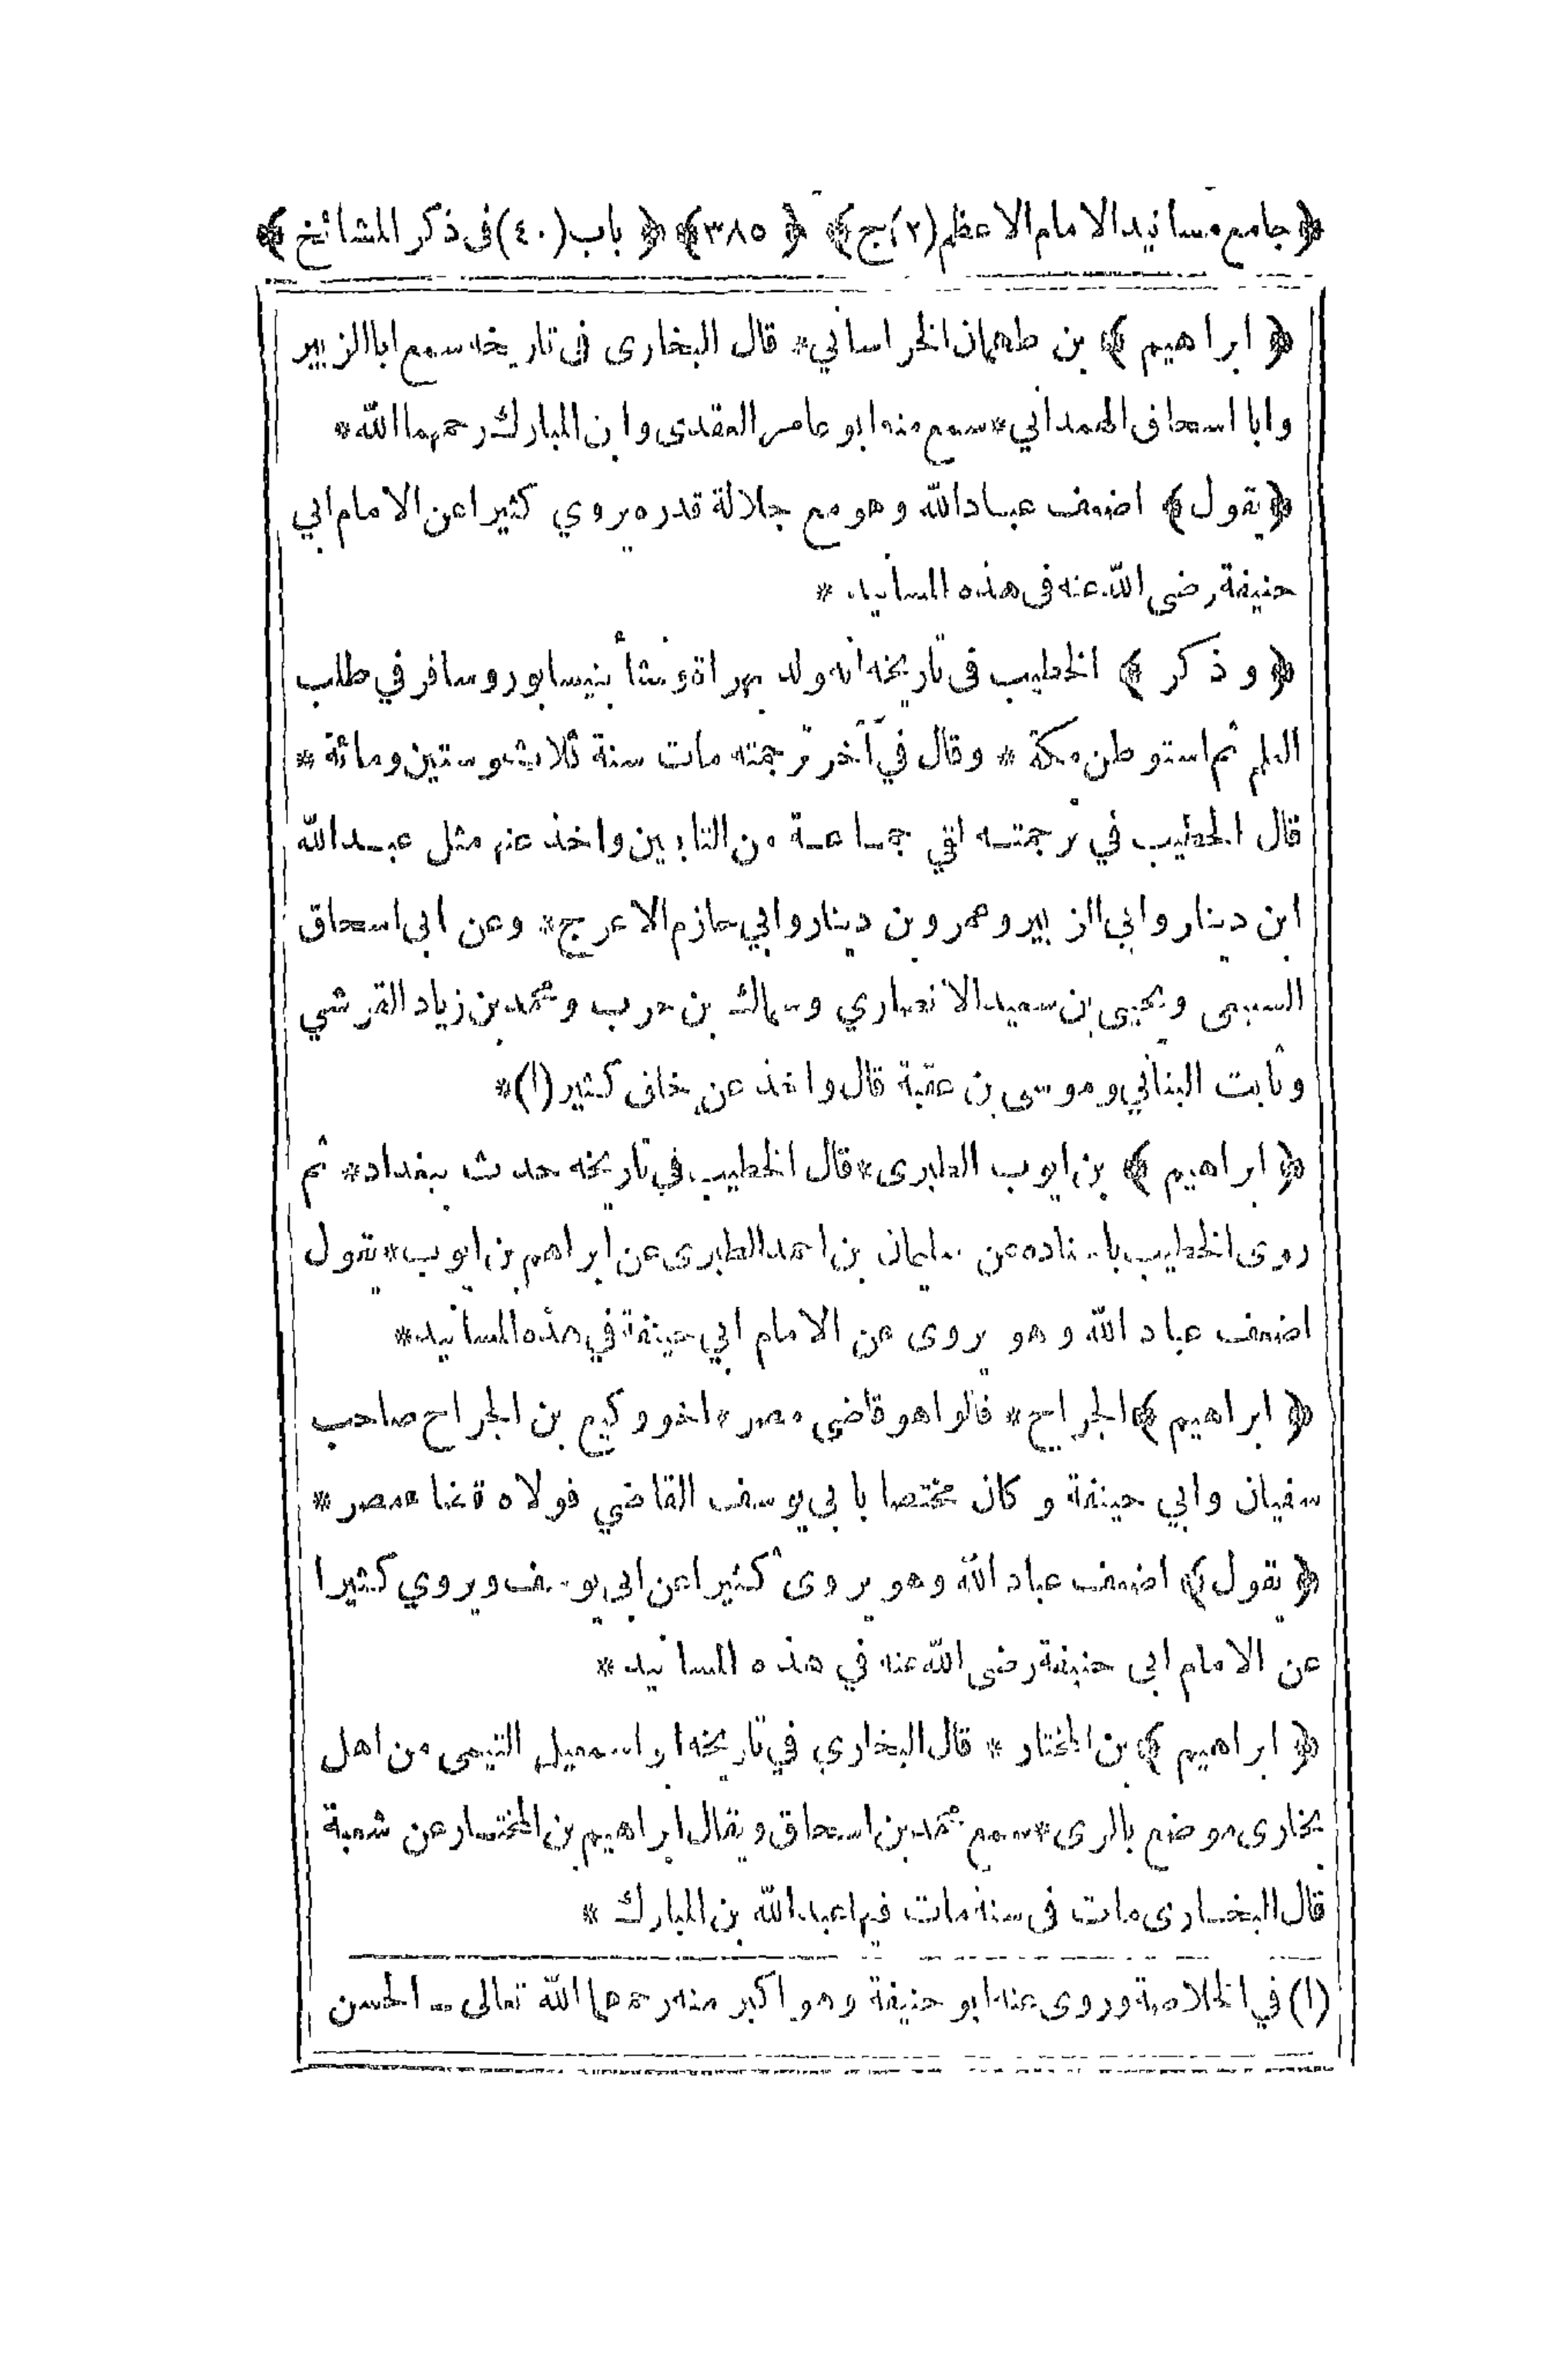 ﴿جامع مسانيد الامام الاعظم (٢/ج)﴾ ﴿٣٨٥﴾ ﴿باب (٤٠) فى ذكر المشائخ﴾
﴿ ابراهيم ﴾ بن طهمان الخراساني* قال البخارى فى تاريخه سمع ابا الزبير
وابا اسحاق الهمدانى* سمع منه ابو عامر العقدى وابن المبارك رحمهما الله*
﴿يقول﴾ اضعف عباد الله وهو مع جلالة قدره يروي كثيرا عن الامام ابي
حنيفة رضى الله عنه فى هذه المسانيد *
﴿ وذكر ﴾ الخطيب فى تاريخه انه ولد بهراة ونشأ بنيسابور وسافر في طلب
العلم ثم استوطن مكة * وقال في آخر ترجمته مات سنة ثلاث وستين ومائة *
قال الخطيب في ترجمته لقي جماعة من التابعين واخذ عنهم مثل عبد الله
ابن دينار وابي الزبير وعمرو بن دينار وابي حازم الاعرج* وعن ابى اسحاق
السبيعى ويحيى بن سعيد الانصاري وسماك بن حرب ومحمد بن زياد القرشي
وثابت البناني وموسى بن عقبة قال واخذ عن خلق كثير (١)*
﴿ ابراهيم ﴾ بن ايوب الطبرى* قال الخطيب في تاريخه حدث ببغداد* ثم
روى الخطيب باسناده عن سليمان بن احمد الطبرى عن ابراهيم بن ايوب* يقول
اضعف عباد الله وهو يروى عن الامام ابي حنيفة في هذه المسانيد*
﴿ ابراهيم ﴾ الجراح* قالوا هو قاضى مصر* اخو وكيع بن الجراح صاحب
سفيان وابي حنيفة وكان مختصا بابي يوسف القاضي فولاه قضا مصر *
﴿ يقول﴾ اضعف عباد الله وهو يروى كثيرا عن ابي يوسف ويروي كثيرا
عن الامام ابى حنيفة رضى الله عنه في هذه المسانيد *
﴿ ابراهيم ﴾ بن المختار * قال البخاري في تاريخه ابو اسمعيل التيمى من اهل
بخارى موضع بالرى* سمع محمد بن اسحاق ويقال ابراهيم بن المختار عن شعبة
قال البخارى مات فى سنة مات فيها عبد الله بن المبارك *
(١) في الخلاصة وروى عنه ابو حنيفة وهو اكبر منه رحمهما الله تعالى - الحسن